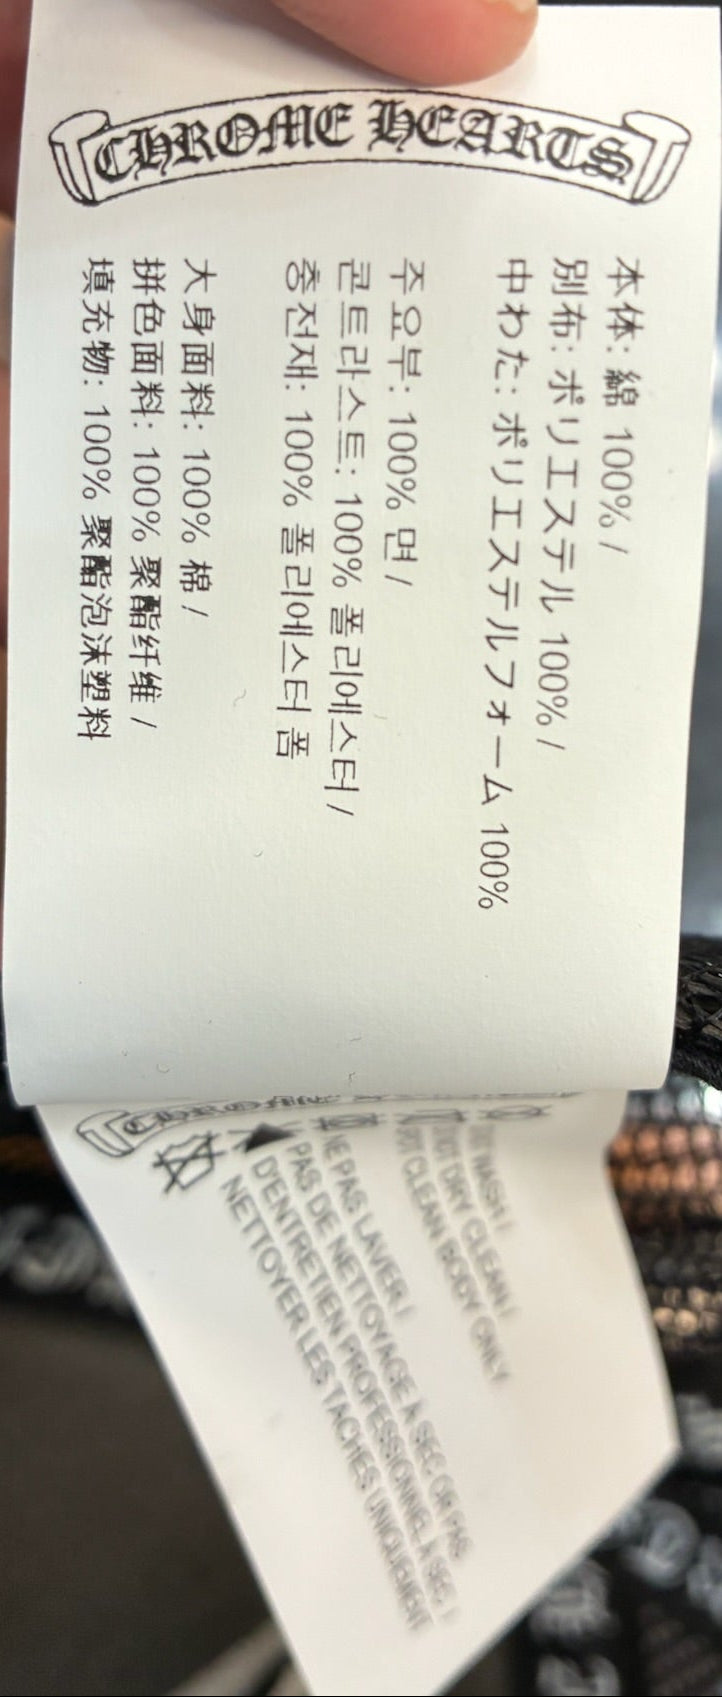 CHROME HEARTS
本体: 綿 100% /
別布: ポリエステル 100% /
中わた: ポリエステルフォーム 100%
주요부: 100% 면 /
콘트라스트: 100% 폴리에스터 /
충전재: 100% 폴리에스터 폼
大身面料: 100% 棉 /
拼色面料: 100% 聚酯纤维 /
填充物: 100% 聚酯泡沫塑料
CHROME
WASH /
DRY CLEAN /
CLEAN BODY ONLY
NE PAS LAVER /
PAS DE NETTOYAGE À SEC OR PAS
D'ENTRETIEN PROFESSIONNEL À SEC /
NETTOYER LES TACHES UNIQUEMENT